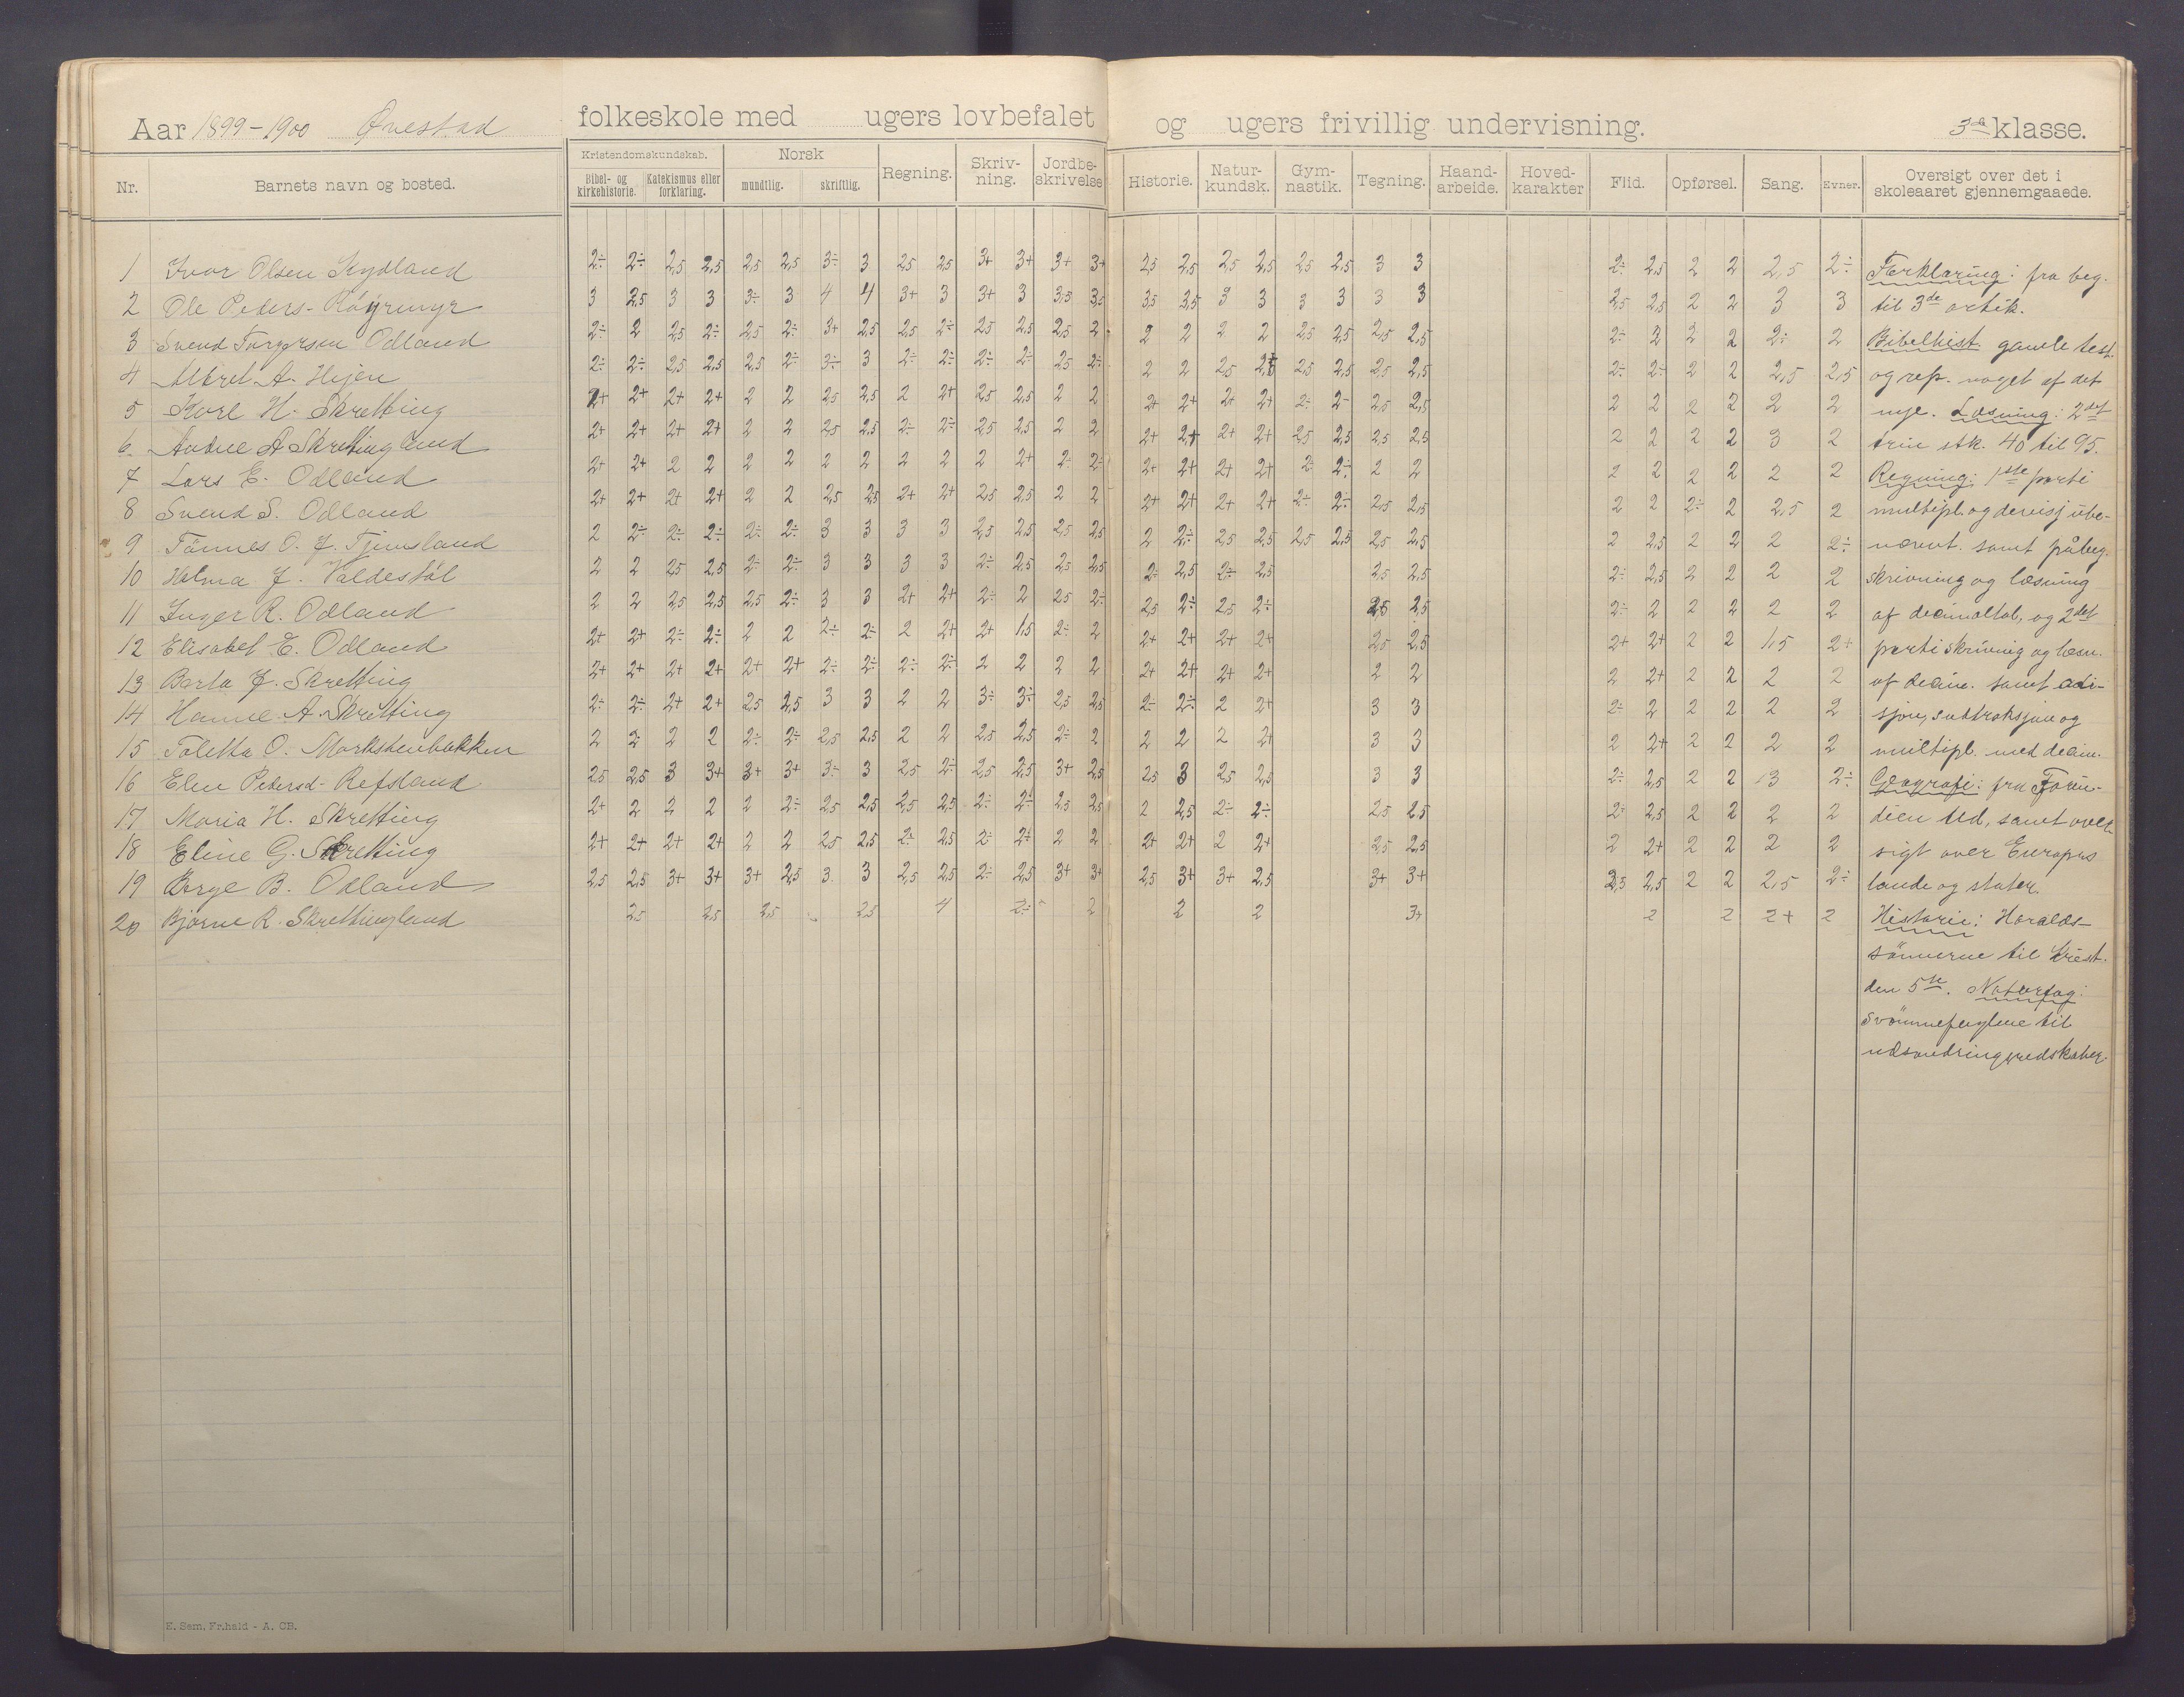 Aar 1899-1900 Ørestad folkeskole med ugers lovbefalet og ugers frivillig undervisning. 3de klasse.
Nr. Barnets navn og bosted. Kristendomskundskab. Bibel- og kirkehistorie. Katekismus eller forklaring. Norsk mundtlig. skriftlig. Regning. Skriv-ning. Jordbe-skrivelse Historie. Natur-kundsk. Gym-nastik. Tegning. Haand-arbeide. Hoved-karakter Flid. Opførsel. Sang. Evner. Oversigt over det i skoleaaret gjennemgaaede.
1 Ivar Olsen Kydland 2÷ 2÷ 2,5 2,5 2,5 2,5 3÷ 3 2,5 2,5 3+ 3+ 3+ 3+ 2,5 2,5 2,5 2,5 2,5 2,5 3 3 2÷ 2,5 2 2 2,5 2÷ Forklaring: fra beg.
2 Ole Peders- Røyrmyr 3 2,5 3 3 3÷ 3 4 4 3+ 3 3+ 3 3,5 3,5 3,5 3,5 3 3 3 3 3 3 2,5 2,5 2 2 3 3 til 3de artik.
3 Svend Torgersen Odland 2÷ 2 2,5 2÷ 2,5 2÷ 3+ 2,5 2,5 2÷ 2,5 2,5 2,5 2 2 2 2 2 2,5 2,5 2,5 2,5 2÷ 2 2 2 2÷ 2 Bibelhist. gamle test.
4 A. Hejen 2÷ 2÷ 2,5 2,5 2,5 2÷ 3÷ 3 2÷ 2÷ 2÷ 2÷ 2,5 2÷ 2 2 2,5 2,5 2,5 2,5 2,5 2÷ 2÷ 2 2 2,5 2,5 og rep. noget af det
5 Karl H. Skretting 2+ 2+ 2+ 2+ 2 2 2,5 2,5 2 2+ 2,5 2,5 2 2 2+ 2+ 2+ 2+ 2÷ 2÷ 2,5 2,5 2 2 2 2 2 2 nye. Læsning: 2det
6. A Skrettingland 2+ 2+ 2+ 2+ 2 2 2,5 2,5 2÷ 2÷ 2,5 2,5 2 2 2+ 2+ 2+ 2+ 2,5 2,5 2,5 2,5 2 2 2 2 3 2 trin stk. 40 til 95.
7 Lars E. Odland 2+ 2+ 2 2 2 2 2 2 2 2 2 2+ 2÷ 2÷ 2+ 2+ 2+ 2+ 2÷ 2÷ 2 2 2 2 2 2 2 2 Regning: 1ste parti
8 Svend S. Odland 2+ 2+ 2+ 2+ 2 2 2,5 2,5 2+ 2+ 2,5 2,5 2 2 2+ 2+ 2+ 2+ 2÷ 2÷ 2,5 2,5 2 2 2÷ 2 2,5 2 multipl. og devisj ube-
9 Tønnes O. J. Tjemsland 2 2÷ 2÷ 2÷ 2÷ 2÷ 3 3 3 3 2,5 2,5 2,5 2,5 2 2÷ 2,5 2,5 2,5 2,5 2,5 2,5 2 2,5 2 2 2 2÷ nævnt. samt påbeg.
10 Halma J. Valdestøl 2 2 2,5 2,5 2÷ 2÷ 3 3 3 3 2÷ 2,5 2,5 2,5 2÷ 2,5 2÷ 2,5 2,5 2,5 2÷ 2,5 2 2 2 2 skrivning og læsning
11 Inger R. Odland 2 2 2,5 2,5 2,5 2÷ 3 3 2+ 2+ 2÷ 2 2,5 2÷ 2,5 2÷ 2,5 2÷ 2,5 2,5 2÷ 2 2 2 2 2 af decimaltal, og 2det
12 Elisabet E. Odland 2+ 2+ 2÷ 2÷ 2 2 2÷ 2÷ 2 2+ 2+ 1,5 2÷ 2 2+ 2+ 2+ 2+ 2,5 2,5 2+ 2+ 2 2 1,5 2+ parti skrivning og læsn.
13 Berta J. Skretting 2+ 2+ 2+ 2+ 2+ 2+ 2÷ 2÷ 2÷ 2÷ 2 2 2 2 2+ 2+ 2+ 2+ 2 2 2 2+ 2 2 2 2 af decim. samt adi-
14 Hanne A. Skretting 2÷ 2÷ 2+ 2+ 2,5 2,5 3 3 2 2 3÷ 3÷ 2,5 2,5 2÷ 2÷ 2 2+ 3 3 2÷ 2 2 2 2 2 sjon, subtraksjon og
15 Toletta O. Markstenbakken 2 2 2 2 2÷ 2÷ 2,5 2,5 2 2 2,5 2,5 2÷ 2 2 2 2 2+ 3 3 2 2+ 2 2 2 2 multipl. med decim.
16 Elen Petersd- Refsland 2,5 2,5 3 3+ 3+ 3+ 3÷ 3 2,5 2÷ 2,5 2,5 3+ 2,5 2,5 3 2,5 2,5 3 3 2÷ 2,5 2 2 3 2÷ Geografi: fra Forin-
17 Maria H. Skretting 2+ 2 2 2 2 2÷ 2,5 2,5 2,5 2,5 2÷ 2÷ 2,5 2,5 2 2,5 2÷ 2÷ 2,5 2,5 2÷ 2,5 2 2 2 2 dien ud, samt over-
18 Eline G. Skretting 2+ 2+ 2+ 2+ 2 2 2,5 2,5 2÷ 2,5 2÷ 2÷ 2 2 2+ 2+ 2 2+ 2,5 2,5 2 2+ 2 2 2 2 sigt over Europas
19 Berge B. Odland 2,5 2,5 3+ 3+ 3+ 2,5 3. 3 2,5 2,5 2÷ 2,5 3+ 3+ 2,5 3+ 3+ 2,5 3+ 3+ 2,5 2,5 2 2 2,5 2÷ lande og stater.
20 Bjarne R. Skrettingland 2,5 2,5 2,5 2,5 4 2÷ 2 2 2 3+ 2 2 2+ 2 Historie: Haralds-
sønnerne til Krist.
den 5te. Naturfag:
svømmefuglene til
udsondringsredskaber.
E. Sem, Fr.hald - A. CB.